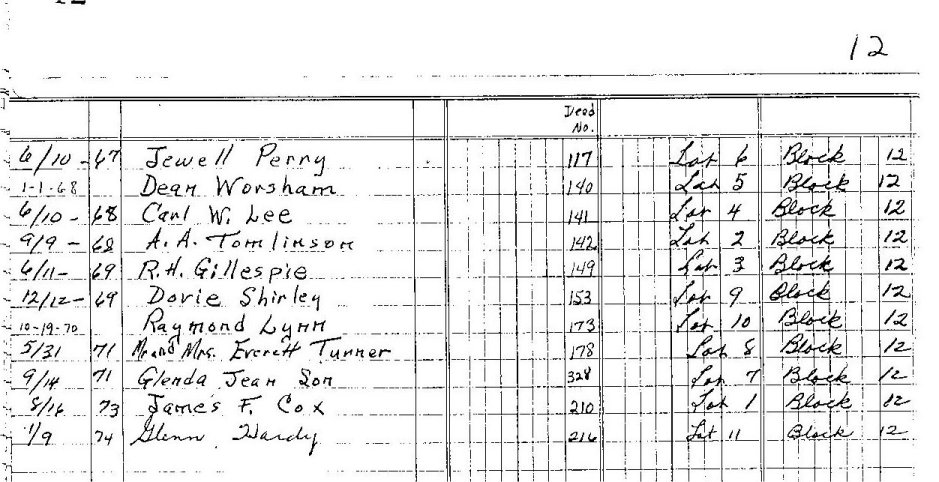 12
Deed
No.
6/10-67 Jewell Perry 117 Lot 6 Block 12
1-1-68 Dean Worsham 140 Lot 5 Block 12
6/10-68 Carl W. Lee 141 Lot 4 Block 12
9/9-68 A.A. Tomlinson 142 Lot 2 Block 12
6/11-69 R.H. Gillespie 149 Lot 3 Block 12
12/12-69 Dovie Shirley 153 Lot 9 Block 12
10-19-70 Raymond Lynn 173 Lot 10 Block 12
5/31 71 Mr and Mrs. Everett Turner 178 Lot 8 Block 12
9/14 71 Glenda Jean Son 328 Lot 7 Block 12
8/16 73 James F. Cox 210 Lot 1 Block 12
1/9 74 Glenn Hardy 216 Lot 11 Block 12